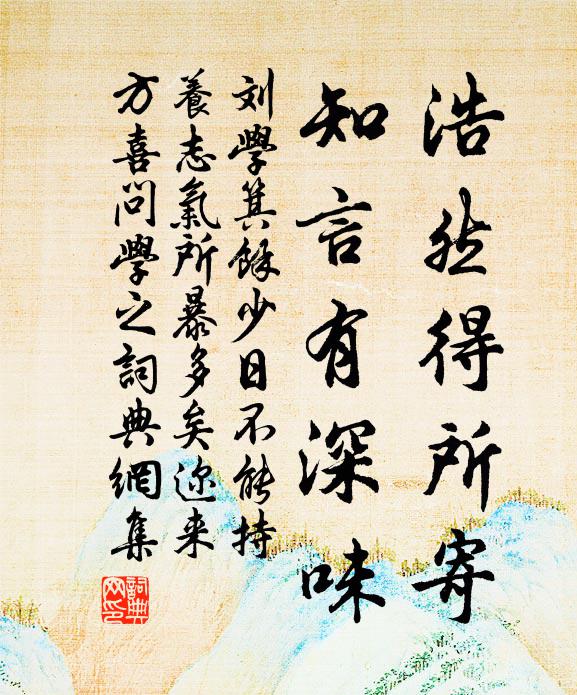 浩然得所寄
知言有深味
刘學箕餘少日不能持
養志氣所暴多矣迩来
方喜問學之詞典網集
詞典
网印